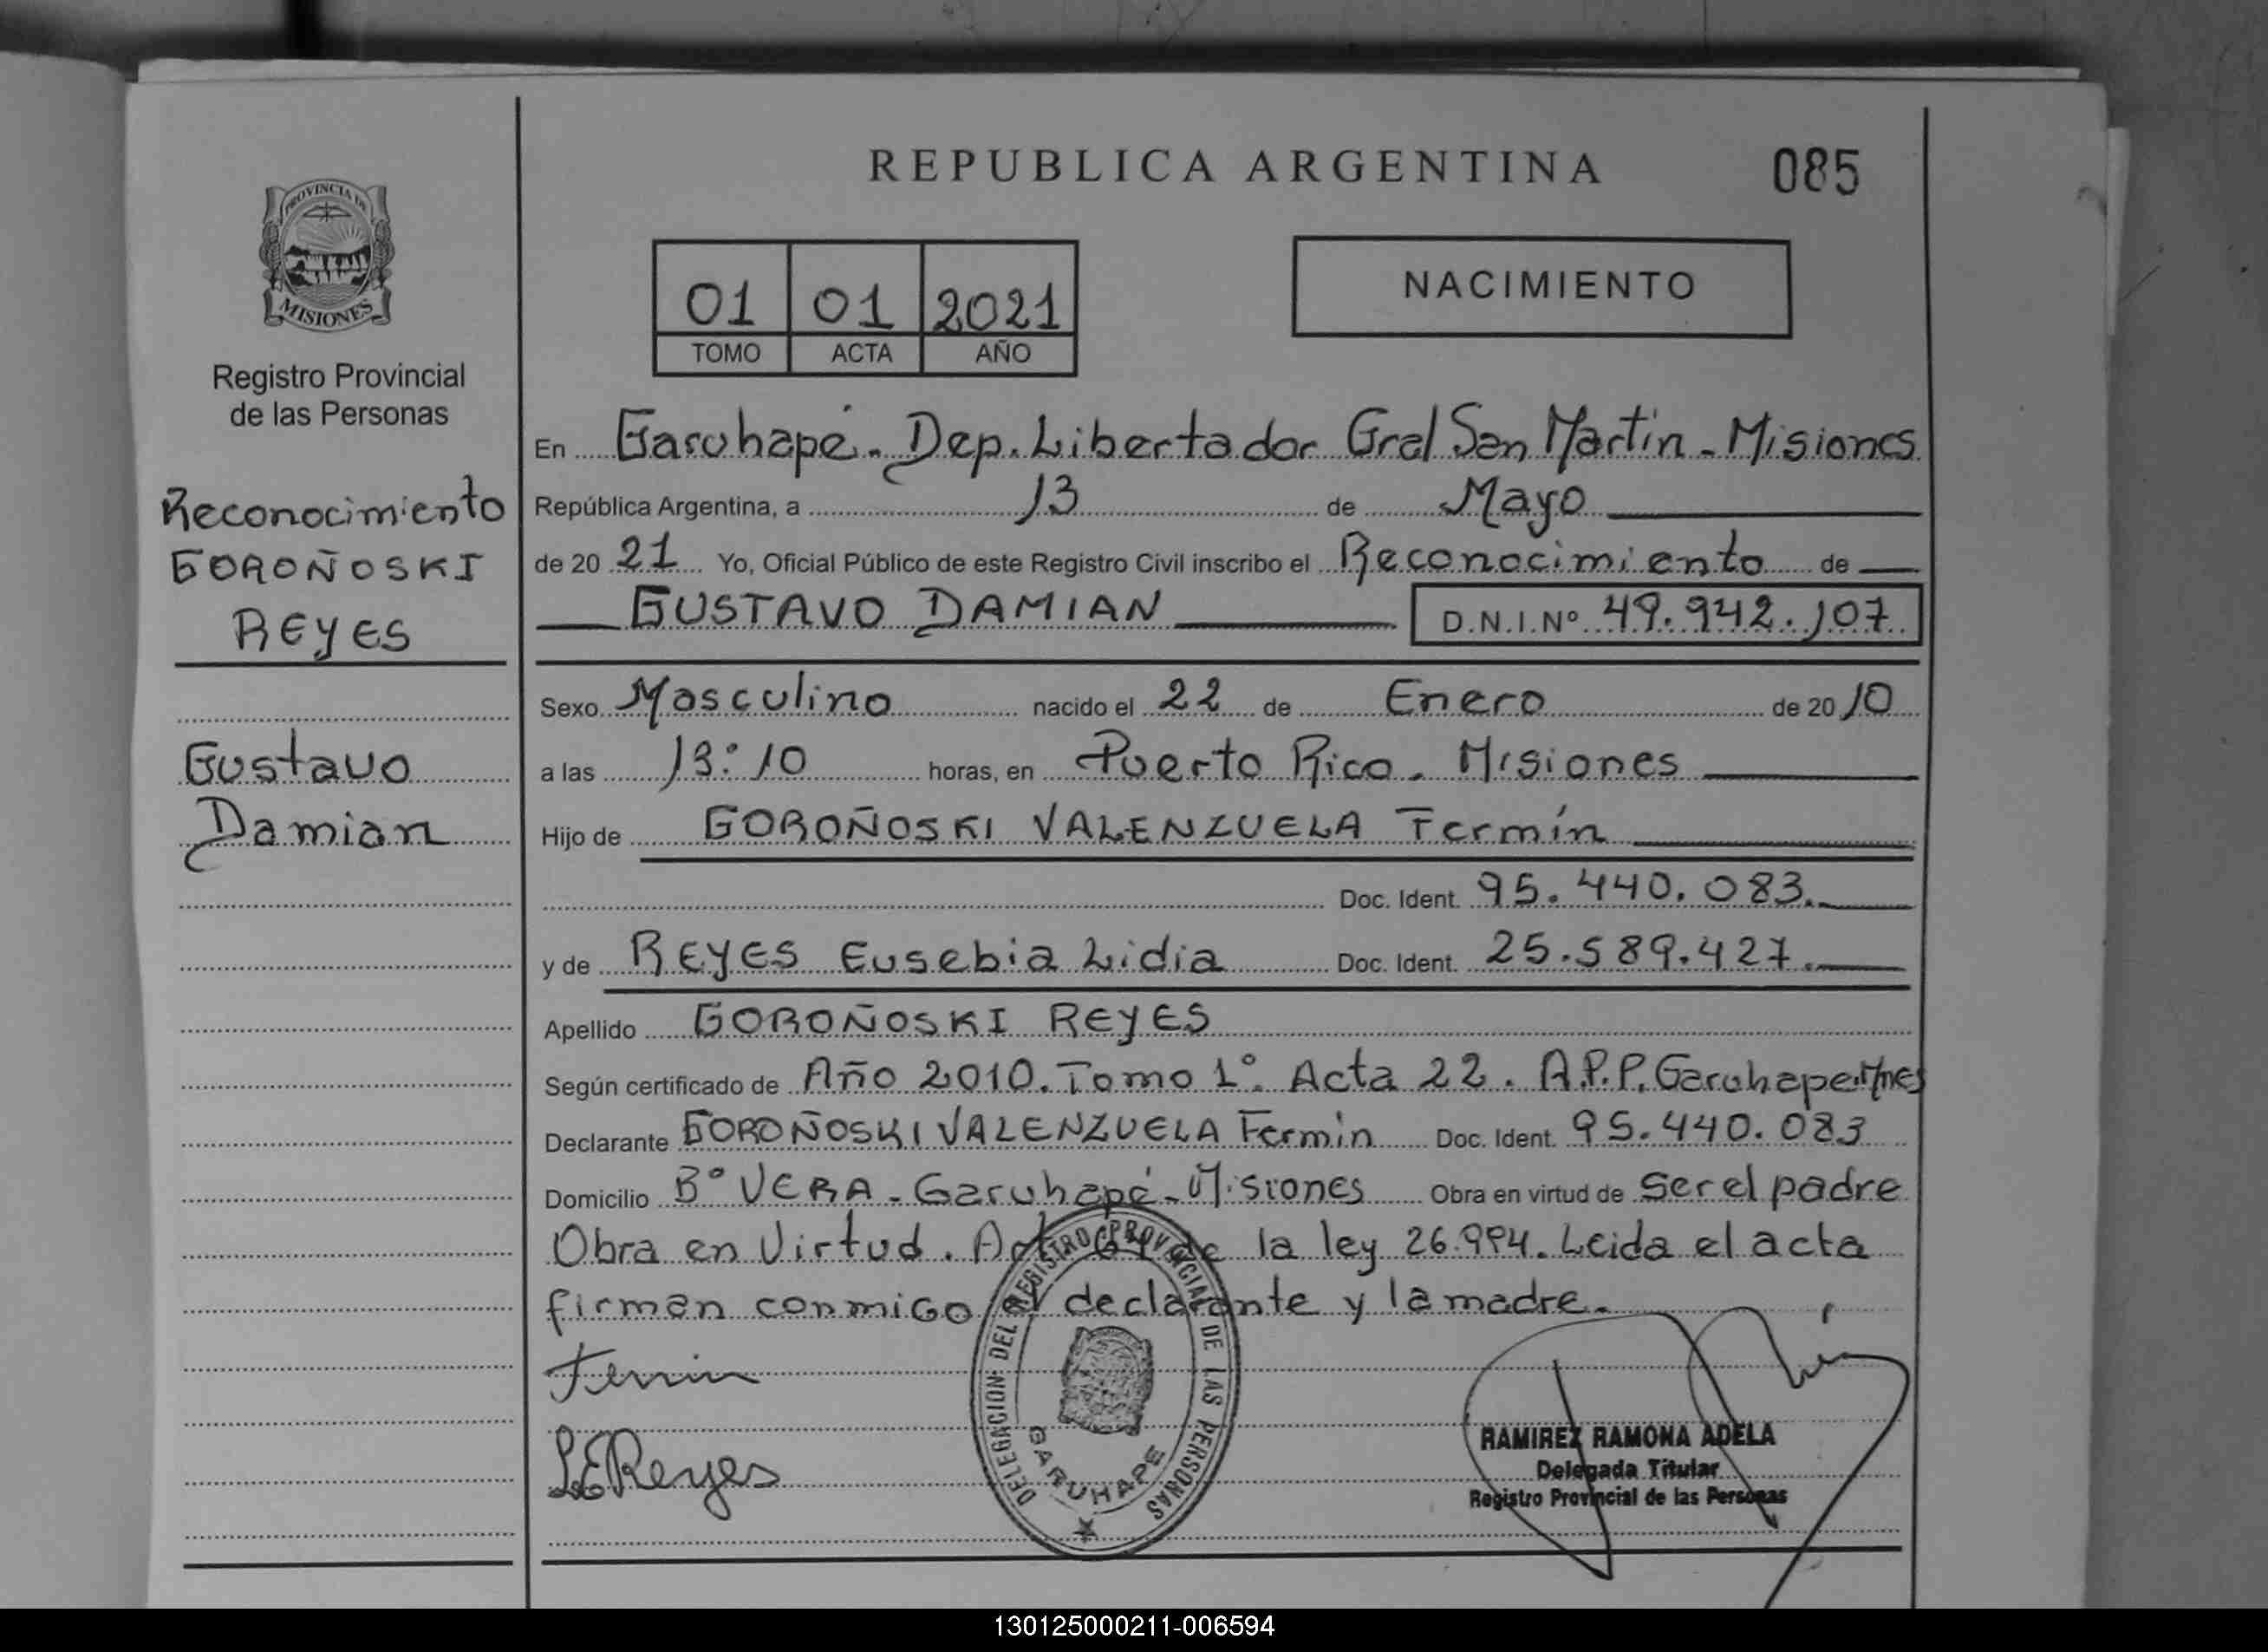 REPUBLICA ARGENTINA
085
PROVINCIA DE
MISIONES
Registro Provincial
de las Personas
Reconocimiento
GOROÑOSKI
REYES
Gustavo
Damian
01 01 2021
TOMO ACTA AÑO
NACIMIENTO
En Garuhapé. Dep. Libertador Gral San Martin - Misiones
República Argentina, a 13 de Mayo
de 20 21 Yo, Oficial Público de este Registro Civil inscribo el Reconocimiento de
GUSTAVO DAMIAN D.N.I.Nº 49.942.107
Sexo Masculino nacido el 22 de Enero de 20 10
a las 13:10 horas, en Puerto Rico. Misiones
Hijo de GOROÑOSKI VALENZUELA Fermín
Doc. Ident. 95.440.083.
y de REYES Eusebia Lidia Doc. Ident. 25.589.427.
Apellido GOROÑOSKI REYES
Según certificado de Año 2010. Tomo 1°. Acta 22. A.P.P. Garuhape. Mnes
Declarante GOROÑOSKI VALENZUELA Fermin Doc. Ident. 95.440.083
Domicilio B° VERA - Garuhapé - Misiones Obra en virtud de Ser el padre
Obra en Virtud. Art. 64 de la ley 26.994. Leida el acta
firman conmigo el declarante y la madre.
Fermin
L E Reyes
DELEGACION DEL REGISTRO PROVINCIAL DE LAS PERSONAS
GARUHAPE
RAMIREZ RAMONA ADELA
Delegada Titular
Registro Provincial de las Personas
130125000211-006594